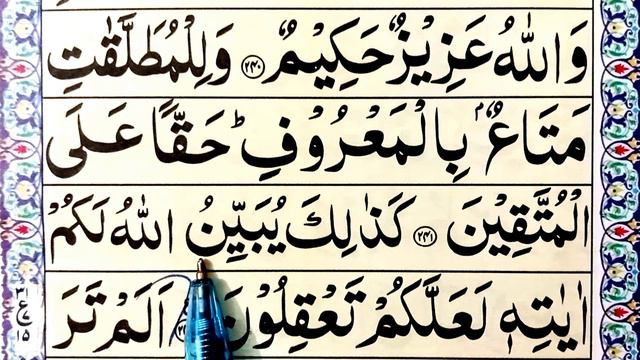 وَاللّٰهُ عَزِيْزٌ حَكِيْمٌ ﴿۲۴۰﴾ وَلِلْمُطَلَّقٰتِ
مَتَاعٌۢ بِالْمَعْرُوْفِ ؕ حَقًّا عَلَى
الْمُتَّقِيْنَ ﴿۲۴۱﴾ كَذٰلِكَ يُبَيِّنُ اللّٰهُ لَكُمْ
اٰيٰتِهٖ لَعَلَّكُمْ تَعْقِلُوْنَ اَلَمْ تَرَ